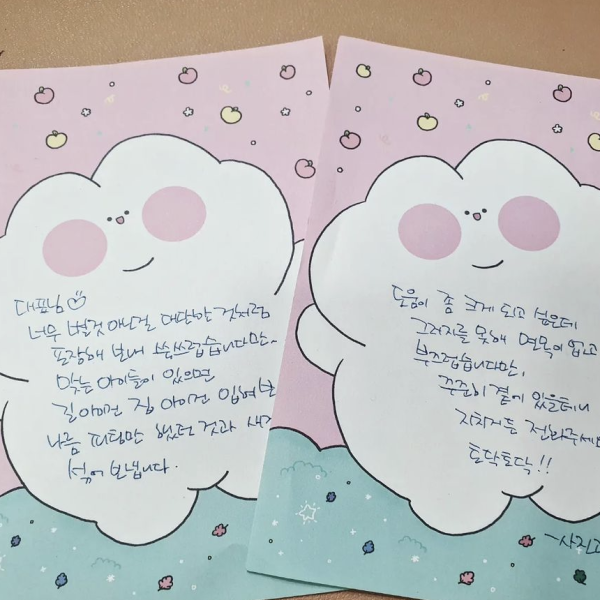 대표님
너무 별것 아닌걸 대단한 것처럼
포장해 보내 쑥쓰럽습니다만,
맞는 아이들이 있으면
길아이건 집 아이건 입혀보
나름 피팅만 했던 것과 새
섞어 보냅니다.
도움이 좀 크게 되고 싶은데
그러지를 못해 면목이 없고
부끄럽습니다만,
꾸준히 곁에 있을테니
지치거든 전화주세
토닥토닥!!